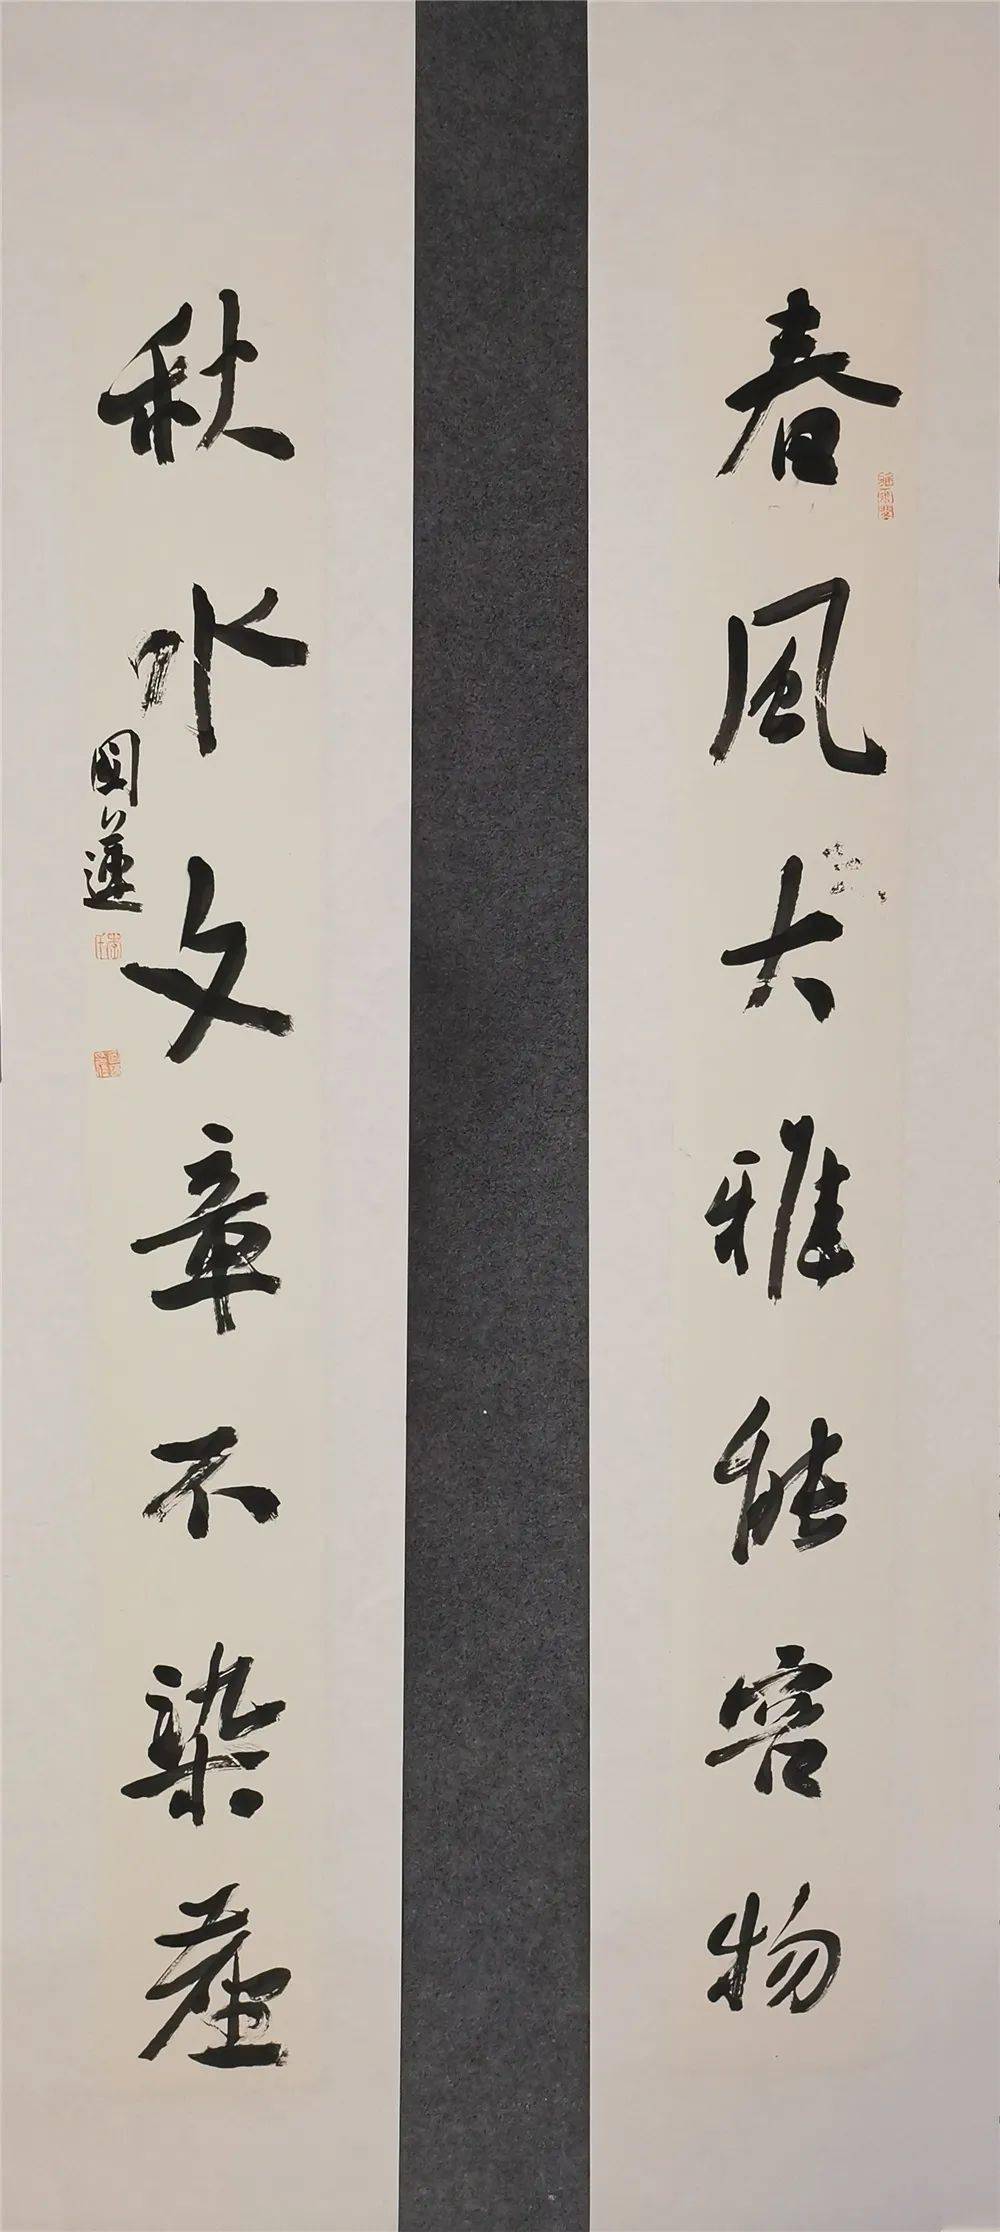 春風大雅能容物
秋水文章不染塵
國蓮